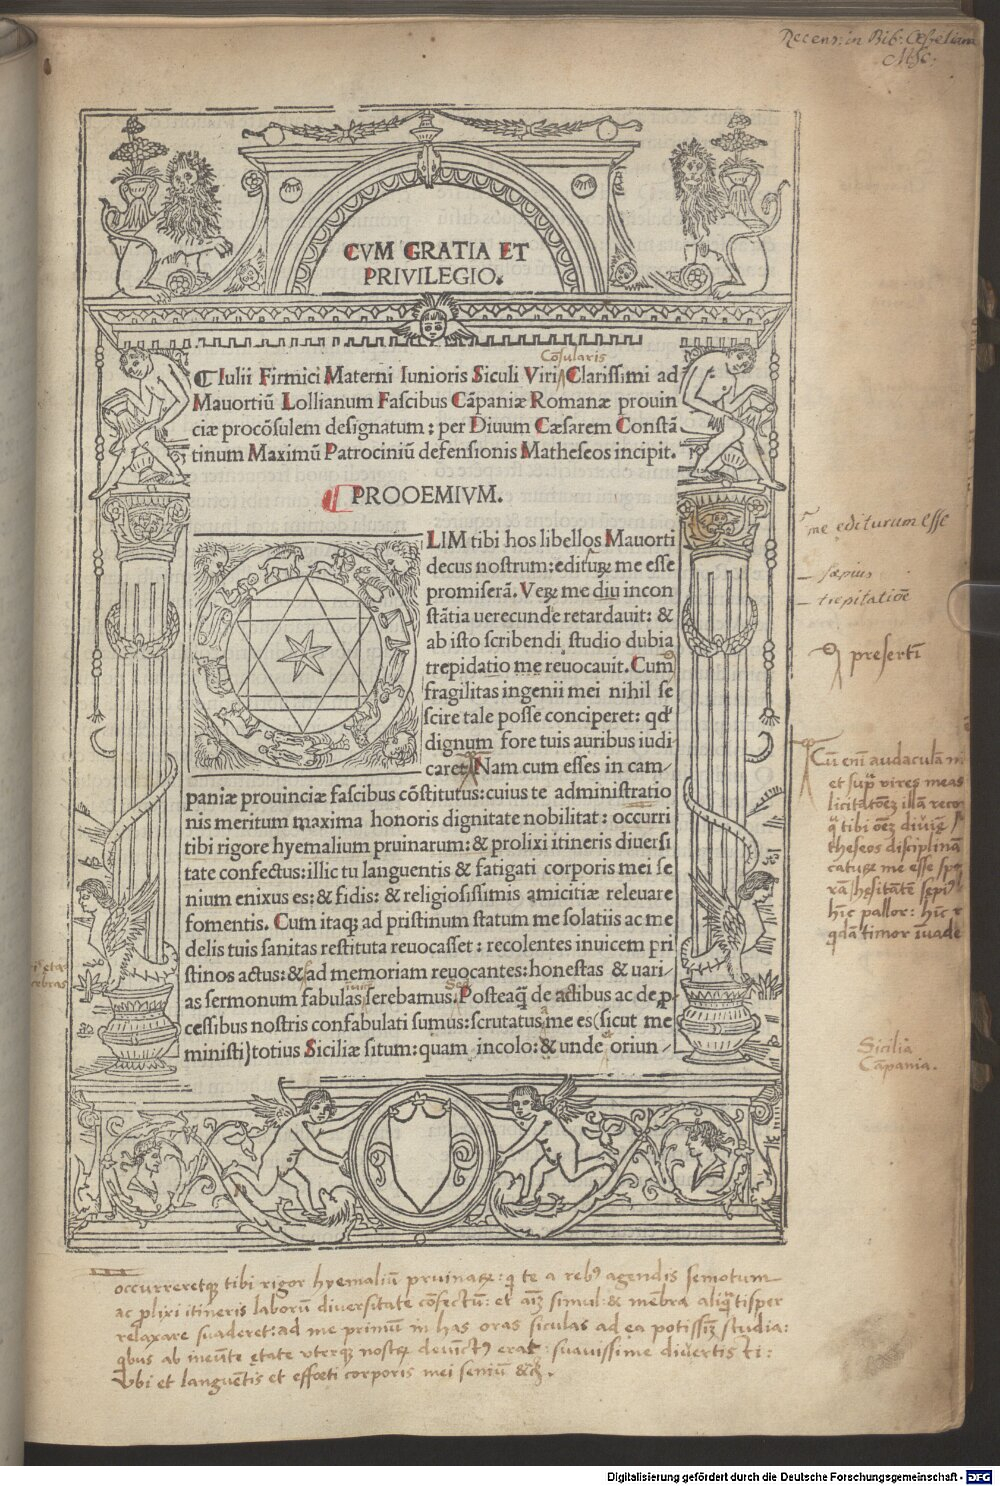 Recens: in Bib: Oefeliana
Msc:
CVM GRATIA ET
PRIVILEGIO.
Cōsularis
⸿ Iulii Firmici Materni Iunioris Siculi Viri Clarissimi ad
Mauortiū Lollianum Fascibus Cāpaniæ Romanæ prouin
ciæ procōsulem designatum : per Diuum Cæsarem Constā
tinum Maximū Patrociniū defensionis Matheseos incipit.
⸿ PROOEMIVM.
LIM tibi hos libellos Mauorti
decus nostrum: editurꝝ me esse
promiserā. Veꝝ me diu incon
stātia uerecunde retardauit: &
ab isto scribendi studio dubia
trepidatio me reuocauit. Cum
fragilitas ingenii mei nihil se
scire tale posse conciperet: qd'
dignum fore tuis auribus iudi-
caret. Nam cum esses in cam-
paniæ prouinciæ fascibus cōstitutus: cuius te administratio
nis meritum maxima honoris dignitate nobilitat : occurri
tibi rigore hyemalium pruinarum: & prolixi itineris diuersi
tate confectus: illic tu languentis & fatigati corporis mei se
nium enixus es: & fidis: & religiosissimis amicitiæ releuare
fomentis. Cum itaq; ad pristinum statum me solatiis ac me
delis tuis sanitas restituta reuocasset : recolentes inuicem pri
stinos actus: & ad memoriam reuocantes: honestas & uari-
as sermonum fabulas serebamus. Posteaq̄ de actibus ac de ꝓ-
cessibus nostris confabulati sumus: scrutatus me es (sicut me
ministi) totius Siciliæ situm: quam incolo: & unde oriun-
me editurum esse
sæpius
trepitatiōe
presertī
Cū enī audaculā
et supra vires meas
licitatōeꝫ illā reco
tibi oēꝫ diuiꝝ
theseos disciplinā
caturꝝ me esse spo
rā hesitātē sepi9
hīc pallor: hīc
qdā timor īuade
Sicilia
Cāpania.
occurreretq; tibi rigor hyemaliū pruinaꝝ: q te a reb9 agendis semotum
ac ꝓlixi itineris laborū diuersitate cōfectū: et aīꝫ simul: & mēbra aliq̄tisper
relaxare suaderet: ad me primū in has oras siculas ad ea potissiꝫ studia:
qbus ab ineūte ętate vterq; nostꝝ deuict9 erat: suauissime diuertisti:
Vbi et languētis et effœti corporis mei seniū &c.